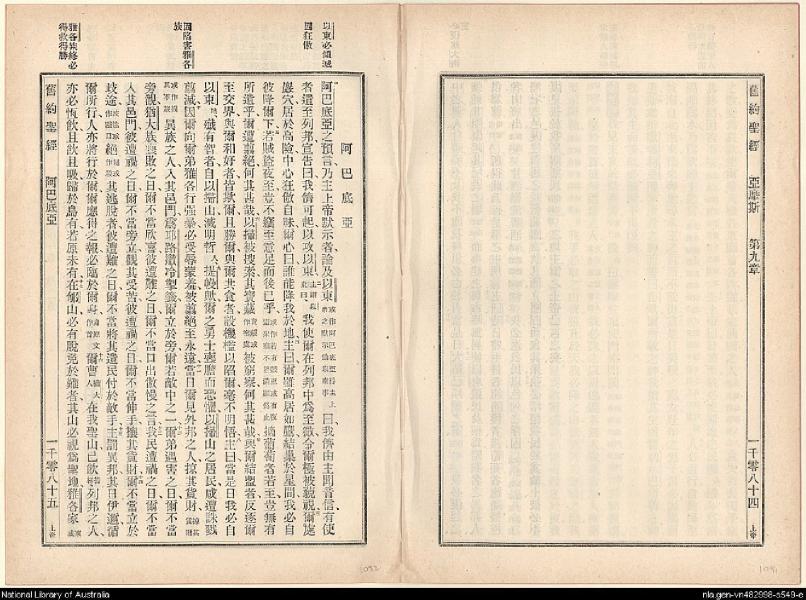 舊約聖經
亞麼斯
第九章
一千零八十四
上帝
以東必傾滅
因狂傲
因陷害雅各族
雅各族終必得救得勝
阿巴底亞
阿巴底亞之預言乃主上帝默示者論及以東
曰我儕由主聞音信有使
者遣至列邦宣告曰我儕可起以攻以東
我使爾在列邦中為至微令爾極被藐視爾處
巖穴居於高險中心狂傲自昧爾心曰誰能降我於地主曰爾雖高居如鷹結巢於星間我必自
彼降爾下若賊盜夜至豈不竊至意足而後已乎
摘葡萄者若至豈無有
所遺乎爾遭翦絕何其甚哉以掃被搜索其寶藏
被窮察何其甚哉與爾結盟者反逐爾
至交界與爾和好者皆欺爾且勝爾與爾共食者設機檻以陷爾毫不明悟主曰當是日我必自
以東殲有智者自以掃山滅明哲
提幔歟爾之勇士喪膽而恐懼以掃山之居民咸遭誅戮
翦滅因爾向爾弟雅各行強暴必受辱蒙羞被翦絕至永遠當日爾見外邦之人掠其貨財
異族之人入其邑門為耶路撒冷掣籤爾立於旁爾若敵中之一爾弟遇害之日爾不當
旁觀猶大族喪敗之日爾不當欣喜彼遭難之日爾不當口出傲慢之言我民遭禍之日爾不當
入其邑門彼遭禍之日爾不當旁立觀其受苦彼遭禍之日爾不當伸手攘其貨財爾不當立於
歧途
絕
其逃脫者彼遭難之日爾不當將其遺民付於敵手主罰異邦其日伊邇循
爾所行人亦將行於爾爾應得之報必臨於爾
爾曹
在我聖山已飲
列邦之人
亦必恆飲且飲且吸歸於烏有若原未有在郇山必有脫免於難者其山必視為聖地雅各家
舊約聖經
阿巴底亞
一千零八十五
上帝
1092
1091
National Library of Australia
nla.gen-vn482998-s549-e